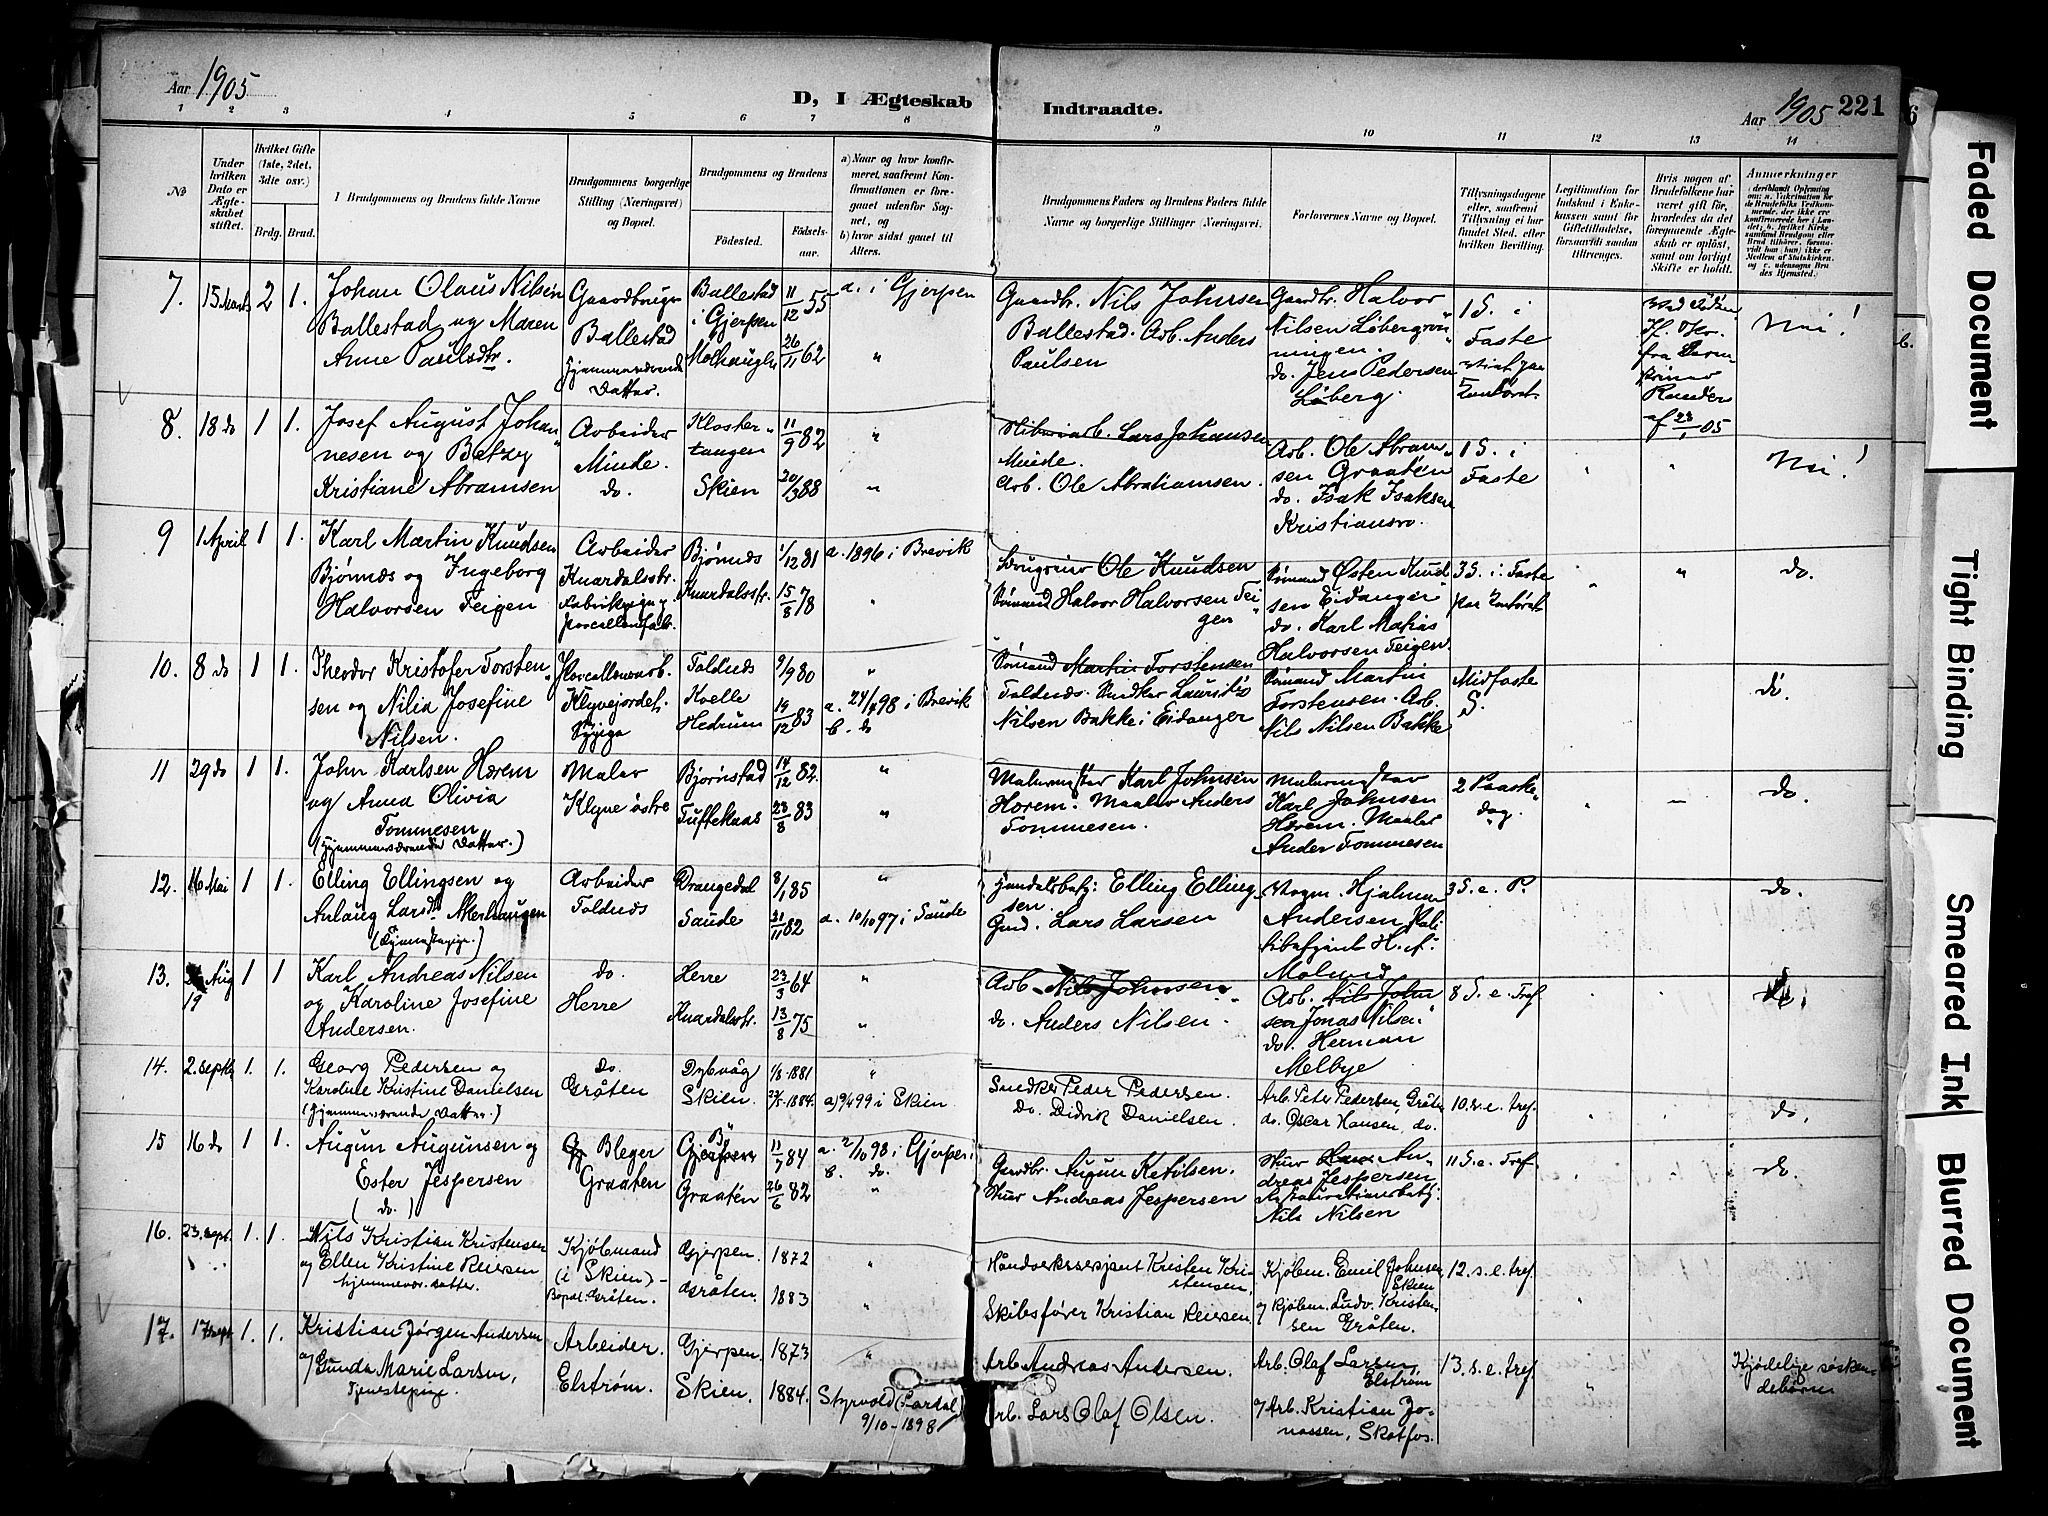 Aar 1905
D, I Ægteskab
Indtraadte.
Aar 1905 221
1 2 3 4 5 6 7 8 9 10 11 12 13 14
№
Under hvilken Dato er Ægteskabet stiftet.
Hvilket Gifte (1ste, 2det, 3die osv.)
Brdg. Brud.
I Brudgommens og Brudens fulde Navne
Brudgommens borgerlige Stilling (Næringsvei) og Bopæl.
Brudgommens og Brudens
Fødested.
Fødselsaar.
a) Naar og hvor konfirmeret, saafremt Konfirmationen er foregaaet udenfor Sognet, og
b) hvor sidst gaaet til Alters.
Brudgommens Faders og Brudens Faders fulde Navne og borgerlige Stillinger (Næringsvei.
Forlovernes Navne og Bopæl.
Tillysningsdagene eller, saafremt Tillysning ei har fundet Sted, efter hvilken Bevilling.
Legitimation for Indskud i Enkekassen samt for Giftetilladelse, forsaavidt saadan tiltrænges.
Hvis nogen af Brudefolkene har været gift før, hvorledes da det foregaaende Ægteskab er opløst, samt om lovligt Skifte er holdt.
Anmerkninger
7. 15 Marts 2 1. Johan Olaus Nilsen Ballestad og Maren Anne Paulsdtr.
Gaardbruger Ballestad Hjemmeværende Datter.
Ballestad i Gjerpen 11/12 55 a. i Gjerpen
26/11 62 "
Gaardbr. Nils Johnsen Ballestad. Arb. Anders Paulsen
Gaardbr. Halvor Nilsen
do. Jens Pedersen Løberg.
1 S. i Faste
af 23/1 05
Nei!
8. 18 do 1 1. Josef August Johannesen og Betzy Kristiane Abramsen
Arbeider Minde. do.
Klostertangen 11/9 82 "
Skien 20/3 88 "
Lars Johansen Minde.
Arb. Ole Abrahamsen.
Arb. Ole Abramsen Graatén
do. Isak Isaksen Kristiansro.
1 S. i Faste " "
Nei!
9 1 April 1 1. Karl Martin Knudsen Bjønnes og Ingeborg Halvorsen Teigen
Arbeider Knardalsstr.
Bjønnes 1/12 81 a. 1896 i Brevik
Knardalsstr. 15/8 78 "
Ole Knudsen
Sømand Halvor Halvorsen Teigen
Sømand Østen Knudsen Eidanger
do. Karl Matias Halvorsen Teigen
3 S. i Faste " "
do.
10. 8 do 1 1. Theodor Kristofer Torstensen og Nilia Josefine Nilsen.
Porcellænsarb. Klyvejordet.
Toldnæs 9/9 80 "
Kvelle Hedrum 19/12 83 a. 24/4 98 i Brevik b. do
Sømand Martin Torstensen Toldnæs. Snedker Lauritz Nilsen Bakke i Eidanger
Sømand Martin Torstensen. Arb. Nils Nilsen Bakke
Midfaste S.
do.
11 29 do 1 1. John Karlsen Hærem og Anna Olivia Tommesen (Hjemmeværende Datter.)
Maler Klyve østre
Bjørnstad 14/12 82 "
Tuftekaas 23/8 83 "
Malermester Karl Johnsen Hærem. Maaler Anders Tommesen.
Malermester Karl Johnsen Hærem. Maaler Anders Tommesen
2 Paaskedag.
" —
do.
12. 16 Mai 1 1. Elling Ellingsen og Aslaug Larsd. Akerhaugen
Arbeider Toldnæs
Drangedal 8/1 85 "
Saude 21/11 82 a. 10/10 97 i Saude
Handelsbetj: Elling Ellingsen.
Gmd. Lars Larsen
Vogm. Hjalmar Andersen
3 S. e. P.
do.
13. Aug 19 1 1 Karl Andreas Nilsen og Karoline Josefine Andersen.
do. Herre
Herre 23/3 64 "
Knardalsstr. 13/8 75 "
Arb. Nils Johnsen
do. Anders Nilsen.
Arb. Nils Johnsen Jonas Nilsen
do. Herman Melbye
8 S. e. Tref " "
14. 2. septbr 1. 1. Georg Pedersen og Karoline Kristine Danielsen (Hjemmeværende Datter.)
do. Gråten
Dybvåg 1881 "
Skien 1884. a) 99 i Skien
Snedker Peder Pedersen.
Do. Didrik Danielsen.
Arb. Peter Pedersen, Gråten
do. Oscar Hansen, do.
10. s. e. tref.
do.
15 16 do 1 1. Augun Augunsen og Ester Jespersen (do.)
Bleger Graaten
Bø Gjerpen 11/7 84 a. 2/10 98 i Gjerpen b. do.
Graatén 26/6 82 "
Gaardbr. Augun Ketilsen.
Stuer Andreas Jespersen
Stuer Andreas Jespersen
Nils Nilsen
11 S. e. Tref.
do
16. 23. sept. 1. 1. Nils Kristian Kristensen og Ellen Kristine Reiersen hjemmevær. datter.
Kjøbmand (i Skien) - Bopæl: Gråten.
Gjerpen. 1872 "
Gråten. 1883 "
Håndverkssersjant Kristen Kristensen,
Skibsfører Kristian Reiersen.
Kjøbm. Emil Johnsen Skien
og Kjøbm. Ludv. Kristensen Gråten.
12. s. e. tref. "
17. 17 sept 1. 1. Kristian Jørgen Andersen og Gunda Marie Larsen, Tjenestepige.
Arbeider. Elstrøm.
Gjerpen. 1873 "
Skien. 1884. Styrvold (Lardal) 9/10 - 1898
Arb. Andreas Andersen.
Arb. Lars Olaf Olsen.
Arb. Olaf Larsen Elstrøm
og Arb. Kristian Jonassen, Skotfos.
13. s. e. tref. "
Kjødelige søskendebørn
Faded Document
Tight Binding
Smeared Ink
Blurred Document